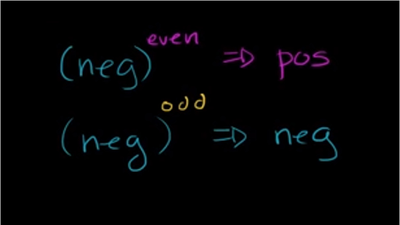 (neg)^even ⇒ pos
(neg)^odd ⇒ neg